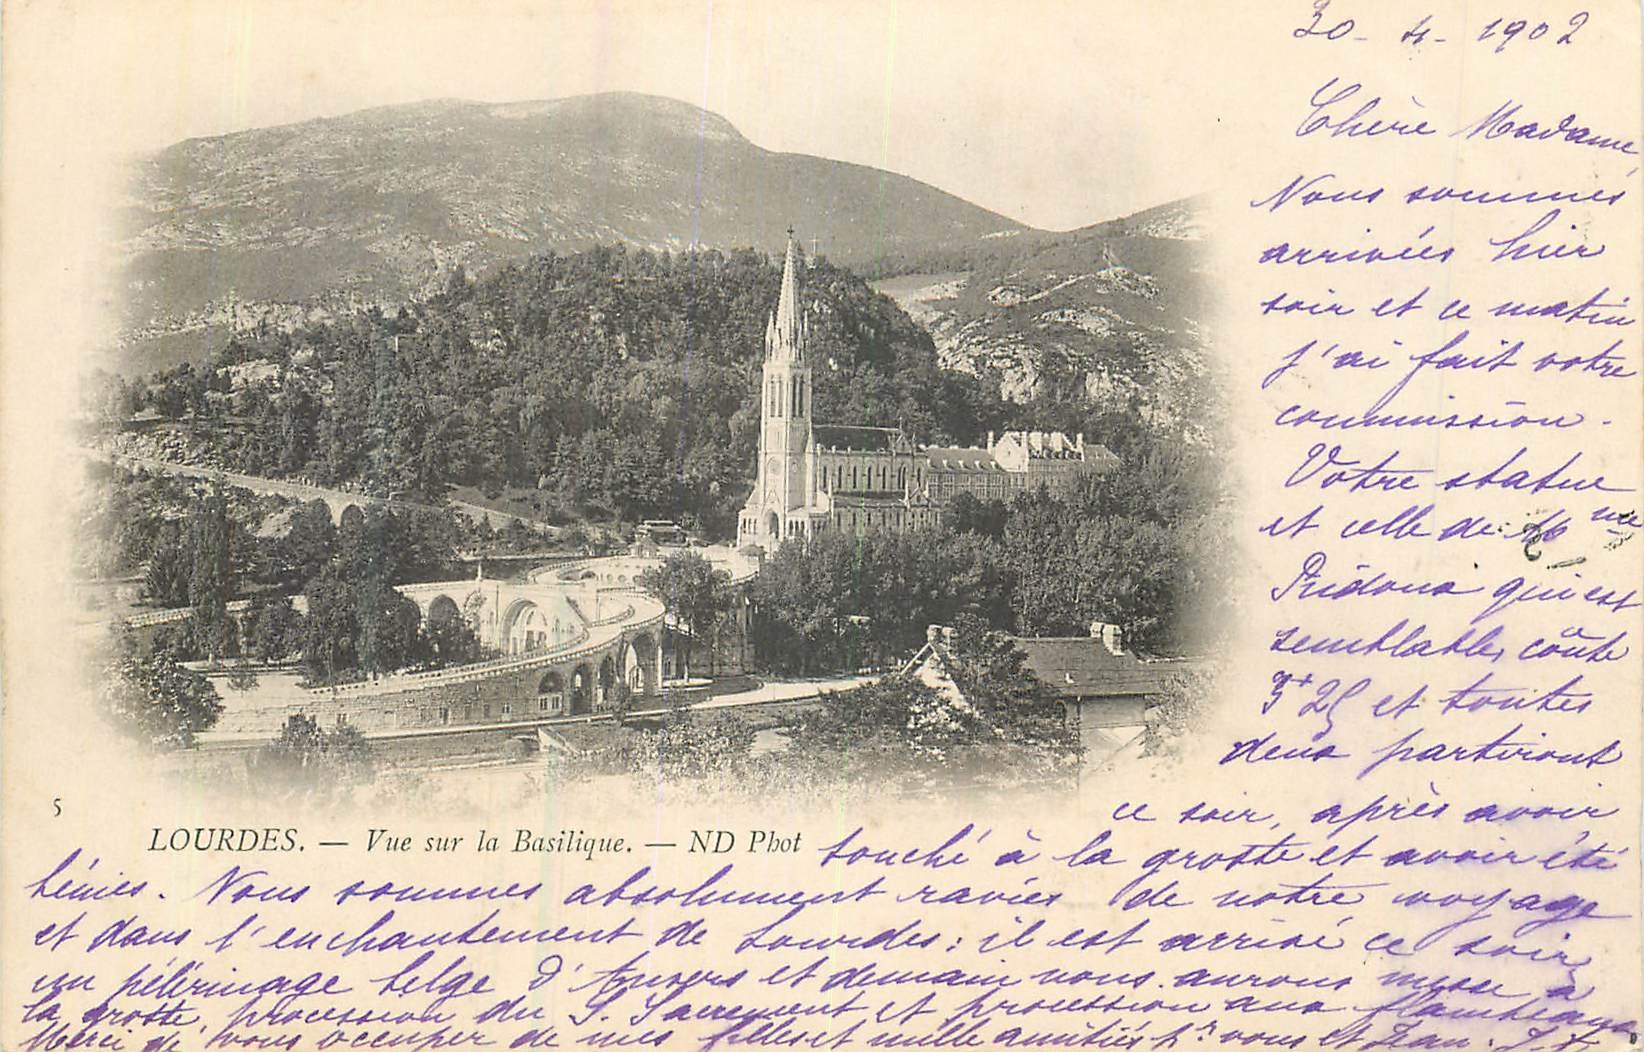 30 - 4 - 1902
Chère Madame,
Nous sommes
arrivées hier
soir et ce matin
j'ai fait votre
commission.
Votre statue
et celle de Mme
qui est
semblable, coûte
3f 25 et toutes
deux partiront
ce soir, après avoir
5
LOURDES. — Vue sur la Basilique. — ND Phot
touché à la grotte et avoir été
bénies. Nous sommes absolument ravies de notre voyage
et dans l'enchantement de Lourdes : il est arrivé ce soir
un pélérinage belge d'Anvers et demain nous aurons messe à
la grotte, procession du S. Sacrement et procession aux flambeaux.
Merci de vous occuper de mes filles et mille amitiés pr vous et Jean.